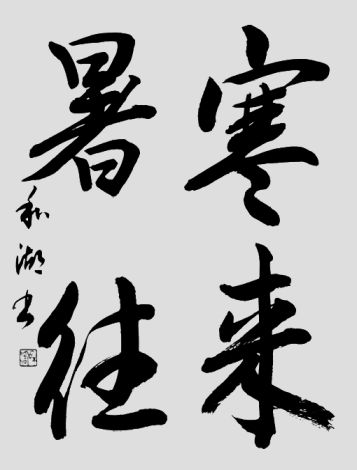 寒来
暑往
和湖书